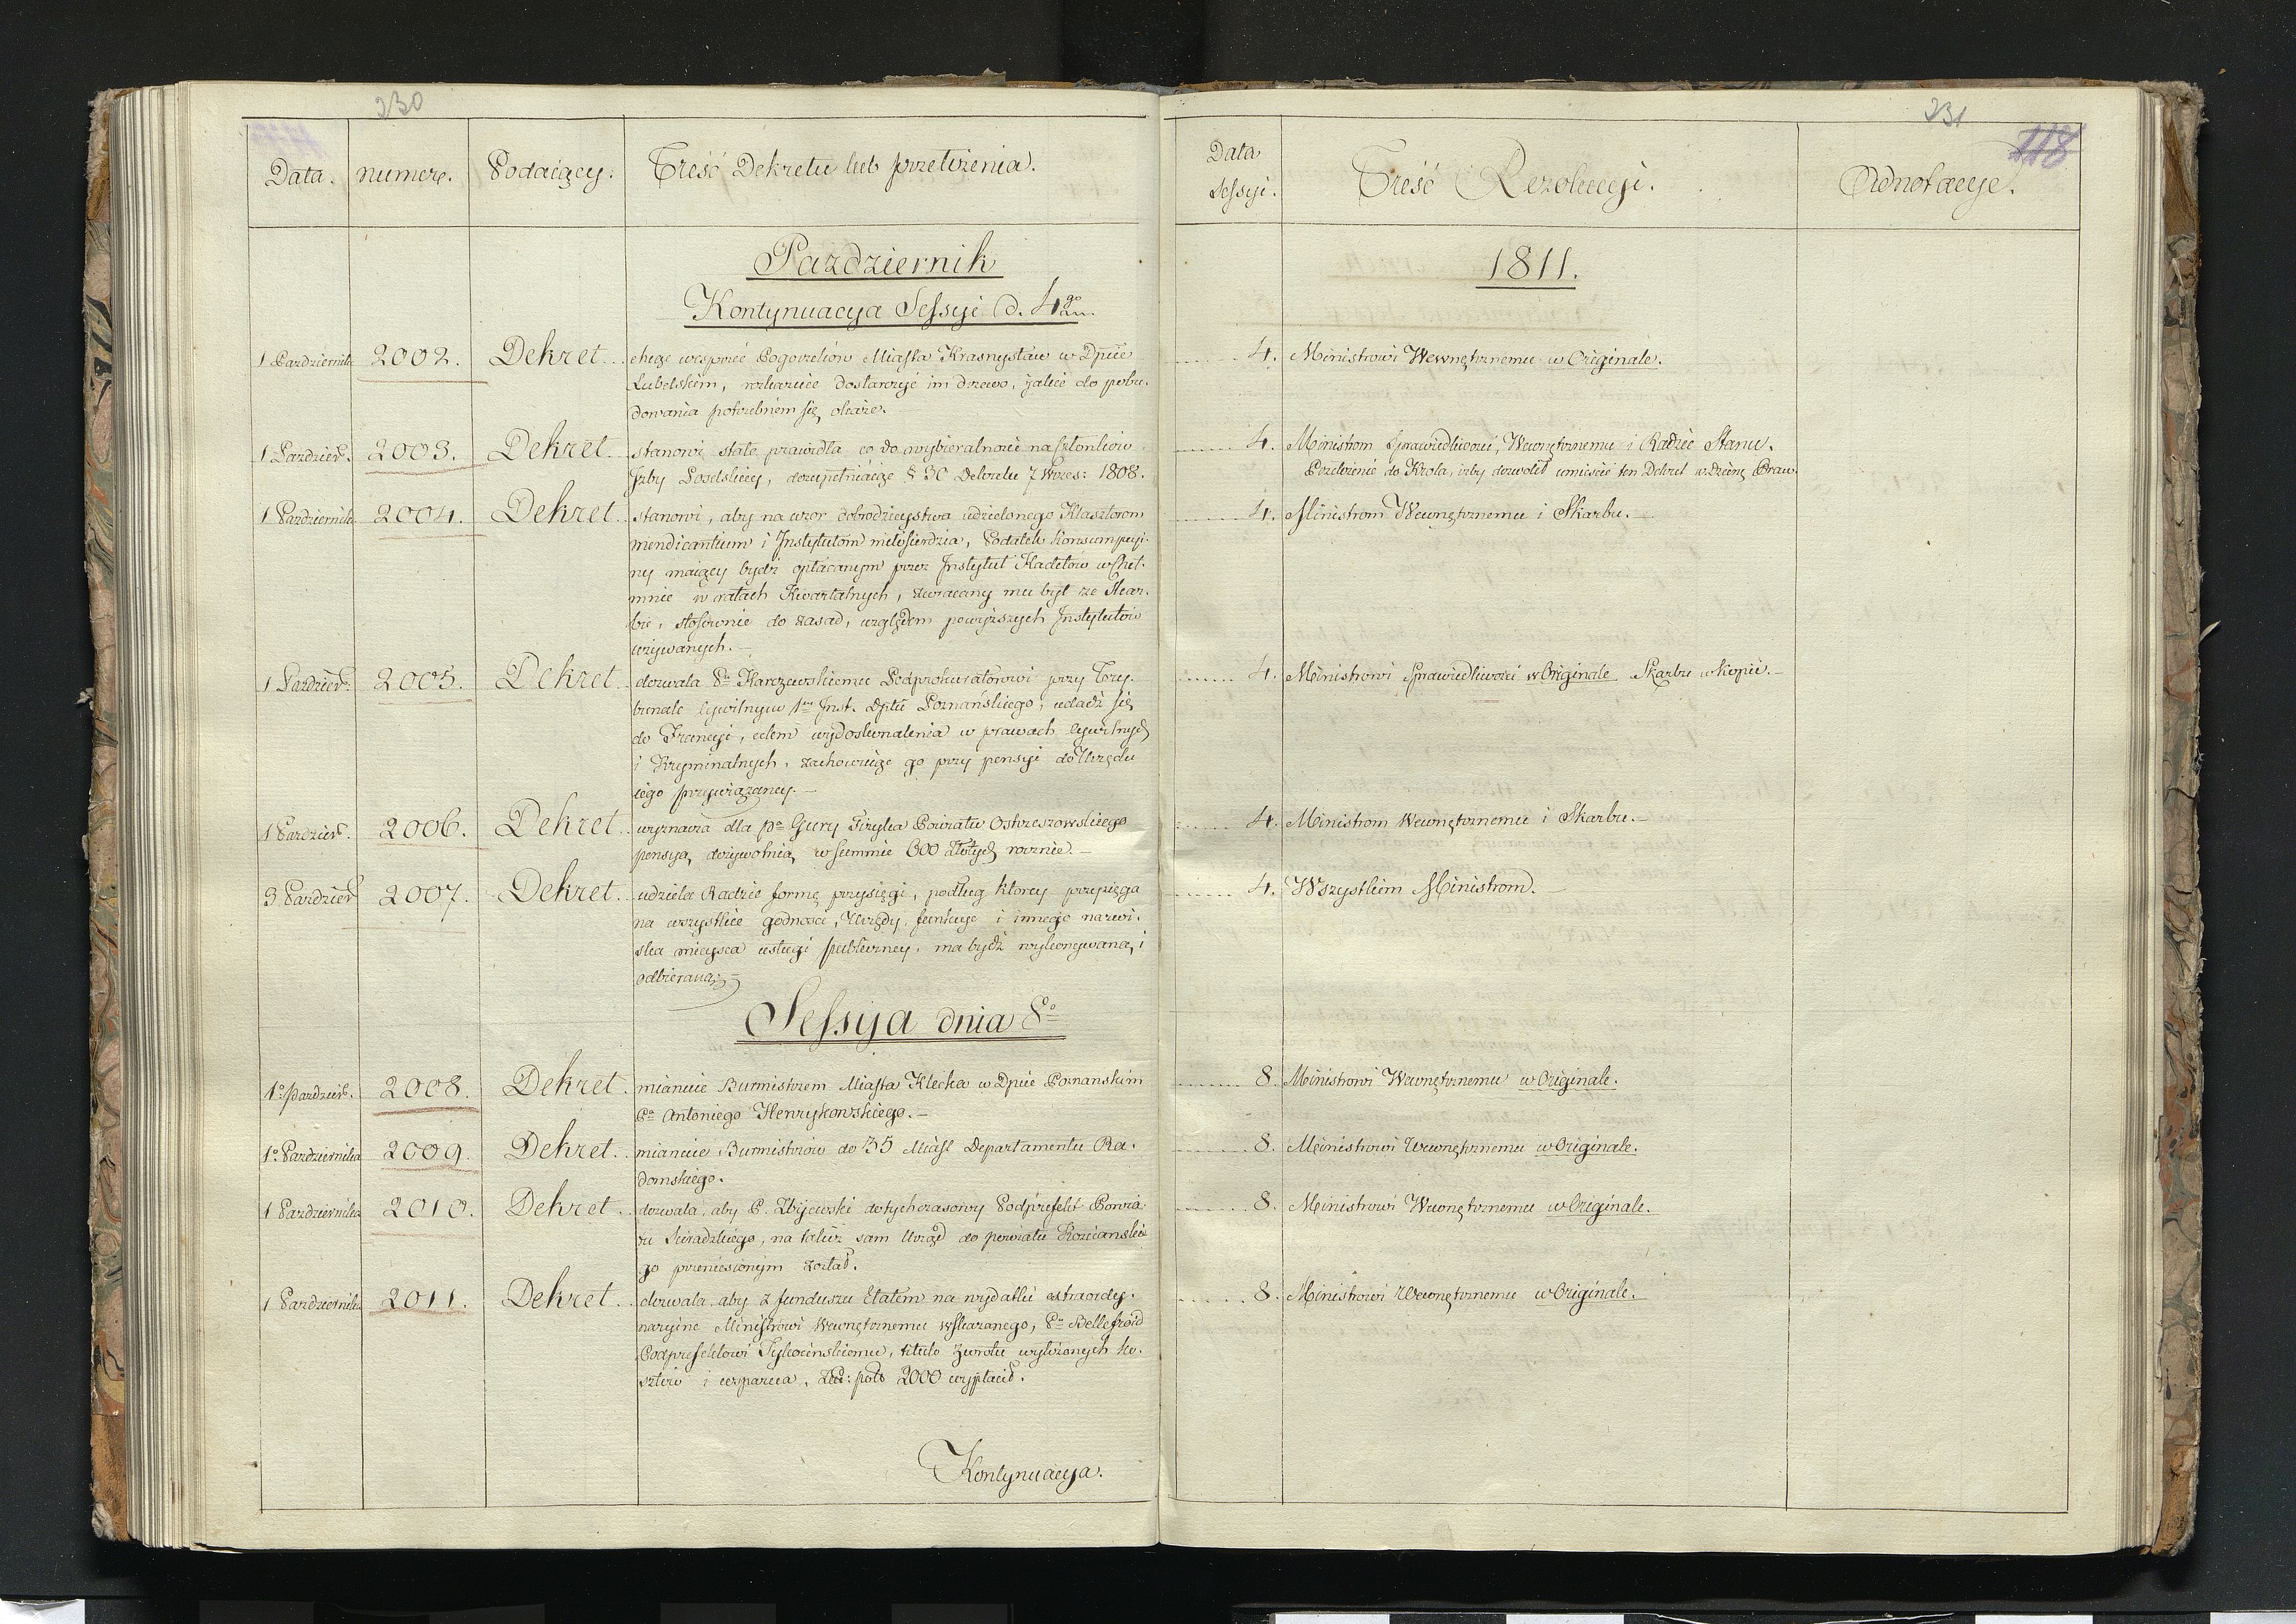 230
Data.
numer.
Podaiący.
Treść Dekretu lub przełożenia.
Pazdziernik
Kontynuacya Sessyi d. 4go
1 Pazdziernika
2002.
Dekret
chcąc wesprzeć Pogorzelców Miasta Krasnystaw w Dpcie
Lubelskim, rozkazuie dostarczyć im drzewo, iakie do pobu-
dowania potrzebnem się okaże.
1 Pazdzier.
2003.
Dekret
stanowi stałe prawidła co do wybieralności na Członków
Izby Poselskiey, dozupełniaiąc § 30 Dekretu 7 Wrześ: 1808.
1 Pazdziernika
2004.
Dekret
stanowi, aby na wzor dobrodzieystwa udzielonego Klasztorom
mendicantium i Instytutom miłosierdzia, Podatek konsumpcyi-
ny maiący bydź opłacanym przez Instytut Kadetów w Cheł-
mnie w ratach Kwartalnych, zwracany mu był ze Skar-
bu, stosownie do zasad, względem powyższych Instytutów
używanych.
1 Pazdzier.
2005.
Dekret
dozwala Pu Karczewskiemu Podprokuratorowi przy Try-
bunale Cywilnym 1ey Inst. Dptu Poznańskiego, udadź się
do Francyi, celem wydoskonalenia w prawach Cywilnych
i Kryminalnych, zachowuiąc go przy pensyi do Urzędu
iego przywiązaney.
1 Pazdzier.
2006.
Dekret
wyznacza dla Pa Gury Fizyka Powiatu Ostrzeszowskiego
pensyą dożywotnią w summie 600 złotych rocznie.
3 Pazdzier
2007.
Dekret
udziela Radzie formę przysięgi, podług ktorey przysięga
na wszystkie godności, Urzędy, funkcye i innego nazwi-
ska mieysca usługi publiczney, ma bydź wykonywaną i
odbieraną.
Sessyja dnia 8o
1o pazdzier.
2008.
Dekret
mianuie Burmistrzem Miasta Klecka w Dpcie Poznanskim
Pa Antoniego Henrykowskiego.
1o Pazdziernika
2009.
Dekret
mianuie Burmistrzów do 35 Miast Departamentu Ra-
domskiego.
1 Pazdziernika
2010.
Dekret
dozwala, aby P. Zbijewski dotychczasowy Podprefekt Powia-
tu Sieradzkiego, na takiż sam Urząd do powiatu Kościanskie-
go przeniesionym został.
1 Pazdziernika
2011.
Dekret
dozwala aby z funduszu Etatem na wydatki extraordy-
naryine Ministrowi Wewnętrznemu wskazanego, Pu Bellefroid
Podprefektowi Tykocinskiemu, titulo zwrotu wyłożonych ko-
sztów i wsparcia, Zło: pols 2000 wypłacił.
Kontynuacya.
231
118
Data
Sessyi.
Treść Rezolucyi.
Adnotacye.
1811.
4. Ministrowi Wewnętrznemu w Originale.
4. Ministrom Sprawiedliwości, Wewnętrznemu i Radzie Stanu.
Przełożenie do Krola, iżby dozwolił umieścić ten Dekret w Dzień: Praw.
4. Ministrom Wewnętrznemu i Skarbu.
4. Ministrowi Sprawiedliwości w Originale Skarbu w kopii.
4. Ministrom Wewnętrznemu i Skarbu.
4. Wszystkim Ministrom.
8. Ministrowi Wewnętrznemu w Originale.
8. Ministrowi Wewnętrznemu w Originale.
8. Ministrowi Wewnętrznemu w Originale.
8. Ministrowi Wewnętrznemu w Originale.